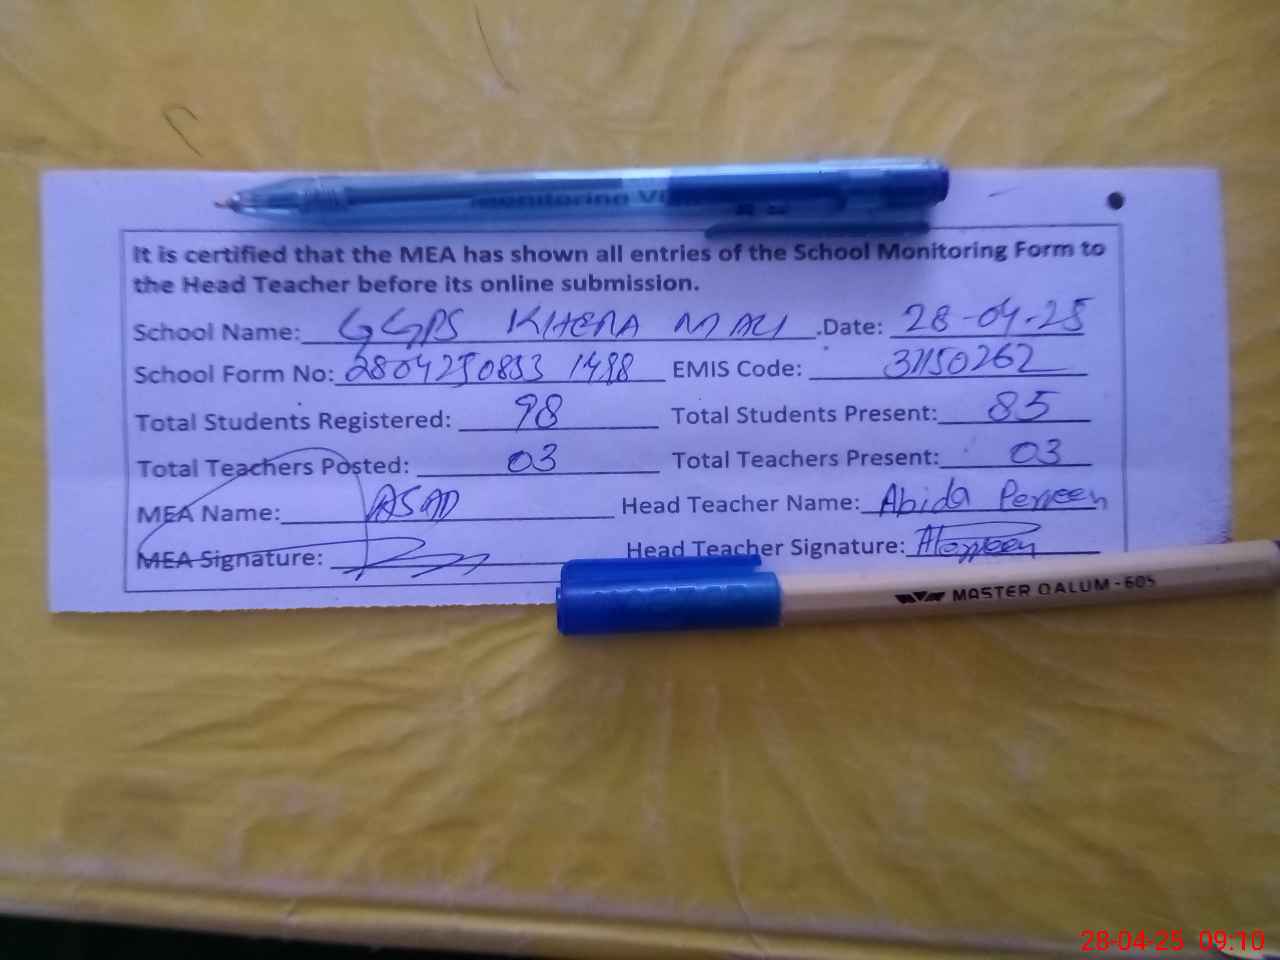 Monitoring Vi
It is certified that the MEA has shown all entries of the School Monitoring Form to
the Head Teacher before its online submission.
School Name: GGPS KHERA MALI .Date: 28-04-25
School Form No: 2804250833 1498 EMIS Code: 31150262
Total Students Registered: 98 Total Students Present: 85
Total Teachers Posted: 03 Total Teachers Present: 03
MEA Name: ASAD Head Teacher Name: Abida Perveen
MEA Signature: Head Teacher Signature:
MASTER QALUM-605
28-04-25 09:10